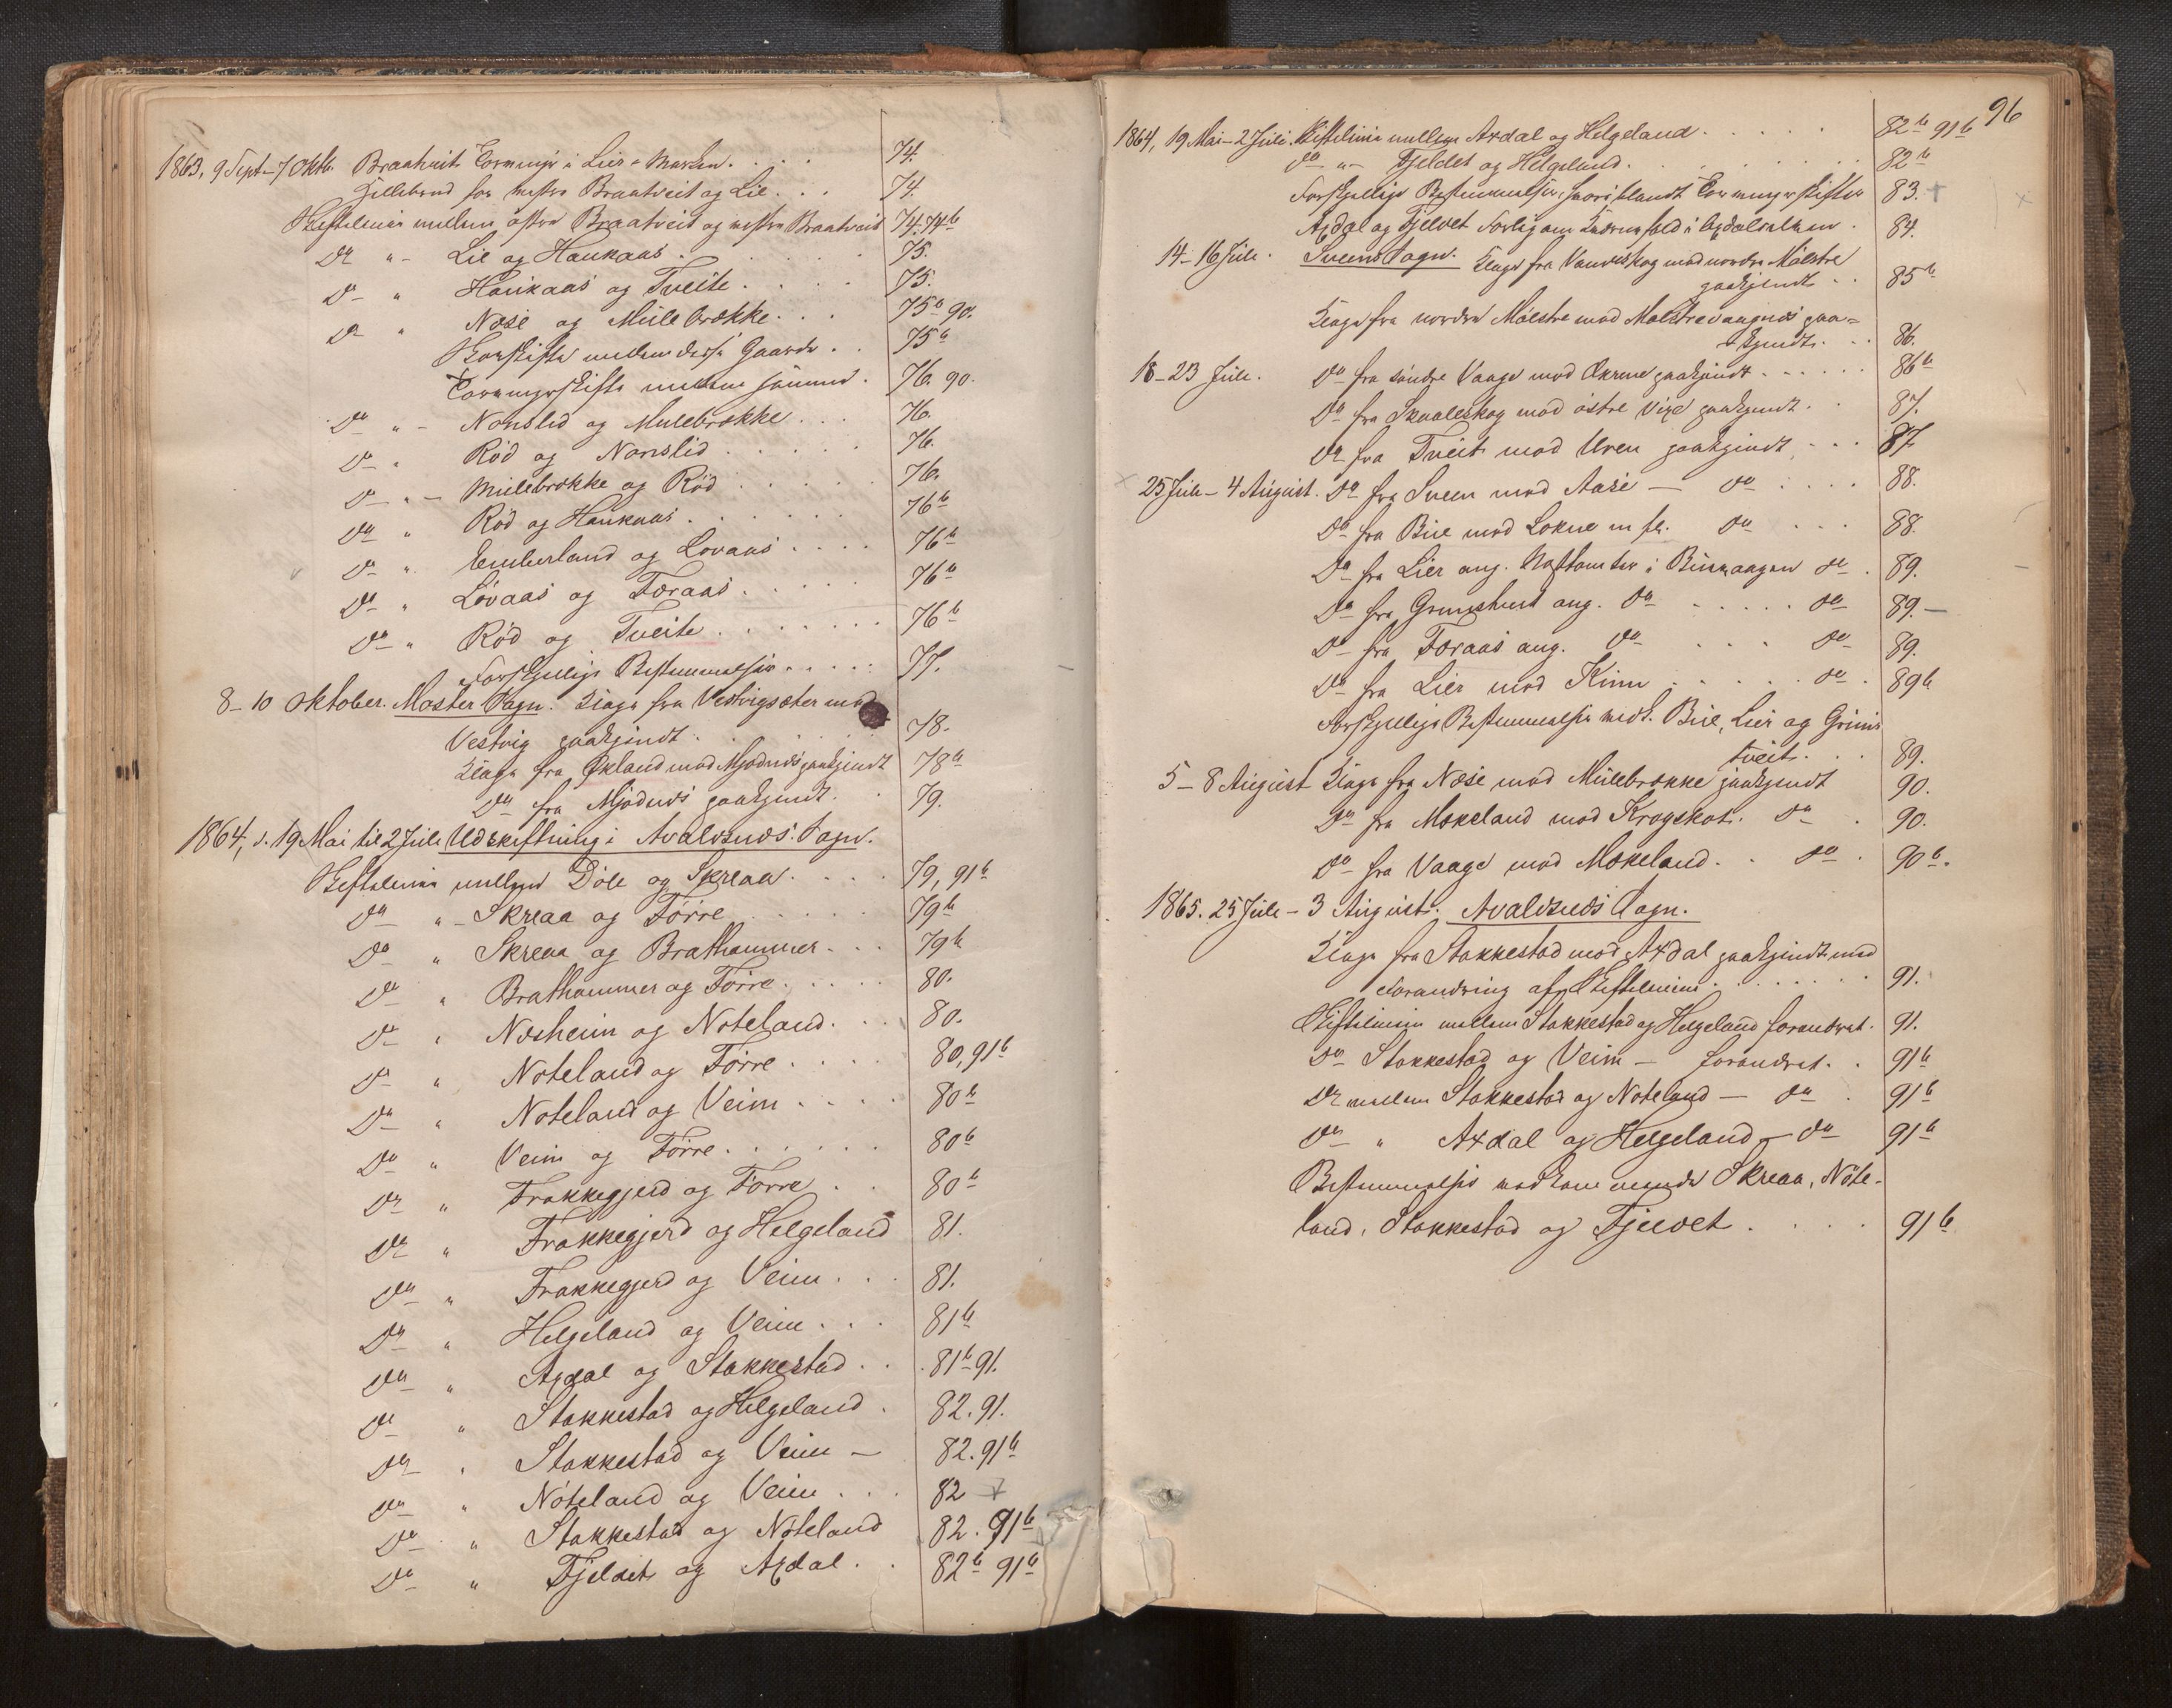 1863, 9 Sept - 7 Oktb. Braatveit Torvmyr i Lier-Marken. 74.
Gillebrud for vestre Braatveit og Lie. 74.
Skiftelinie mellem østre Braatveit og vestre Braatveit 74. 74b
Do " - Lie og Haukaas. 75.
Do " Haukaas og Tveite. 75.
Do " Næse og Mulebrække. 75b 90.
Torvskifte mellem disse Gaarde. 75b
Torvmyrskifte mellem samme. 76. 90.
Do " - Nonslid og Mulebrække. 76.
Do " Rød og Nonslid 76.
Do " - Mulebrække og Rød 76.
Do " Rød og Haukaas. 76b
Do " Emberland og Lovaas 76b
Do " Løvaas og Foraas. 76b
Do " Rød og Tveite 76b
Forskjellige Bestemmelser 77.
8-10 Oktober. Moster Sogn. Klage fra Vestvigsæter mod
Vestvig paakjendt. 78.
Klage fra Økland mod Mjodnes paakjendt 78b
Do fra Mjodnes paakjendt. 79.
1864, d. 19 Mai til 2 Juli Udskiftning i Avaldsnes Sogn.
Skiftelinie mellem Døle og Skreaa. 79, 91b
Do " - Skreaa og Førre 79b
Do " Skreaa og Brathammer. 79b
Do " Brathammer og Førre. 80.
Do " Næsheim og Noteland. 80.
Do " Noteland og Førre. 80, 91b
Do " Noteland og Veim 80b
Do " Veim og Førre. 80b
Do " Frakkegjerd og Førre 80b
Do " Frakkegjerd og Helgeland 81.
Do " Frakkegjerd og Veim. 81.
Do " Helgeland og Veim. 81b
Do " Axdal og Stakkestad. 81b 91.
Do " Stakkestad og Helgeland. 82. 91.
Do " Stakkestad og Veim - 82. 91b
Do " Nøteland og Veim 82
Do " Stakkestad og Nøteland 82. 91b
Do " Fjeldet og Axdal. 82b 91b
96
1864, 19 Mai - 2 Juli. Skiftelinie mellem Axdal og Helgeland 82b 91b
Do " - Fjeldet og Helgeland. 82b
Forskjellige Bestemmelser, hvoriblandt Torvmyrskifter 83.
Axdal og Fjeldet Forlig om i Axdals 84.
14-16 Juli. Sveens Sogn. Klage fra Vandeskog mod nordre Mölstre
paakjendt 85b
Klage fra nordre Mölstre mod Mölstrevaagnes paa-
kjendt. 86.
18-23 Juli. Do fra søndre Vaage mod Økrene paakjendt 86b
Do fra Skualeskog mod østre Vige paakjendt. 87.
Do fra Tveit mod Uren paakjendt 87
25 Juli - 4 August. Do fra Sveen mod Aase - Do 88.
Do fra Bue mod Lokne m fl. Do 88.
Do fra Lier ang. i Buevaagen Do 89.
Do fra Grimstveit ang. Do Do 89.-
Do fra Foraas ang. Do Do 89.
Do fra Lier mod Kinn Do 89b
Forskjellige Bestemmelser vedk. Bue, Lier og Grims
tveit. 89.
5-8 August Klage fra Næse mod Mulebrække paakjendt 90.
Do fra Mækeland mod Krogskot. Do 90.
Do fra Vaage mod Mækeland. Do 90b.
1865. 25 Juli - 3 August. Avaldsnes Sogn.
Klage fra Stakkestad mod Axdal paakjendt med
Forandring af Skiftelinien 91.
Skiftelinien mellem Stakkestad og Helgeland forandret. 91.
Do Stakkestad og Veim - forandret. 91b
Do mellem Stakkestad og Noteland - Do 91b
Do " Axdal og Helgeland - Do 91b
Bestemmelser vedkommende Skreaa, Nöte-
land, Stakkestad og Fjeldet 91b